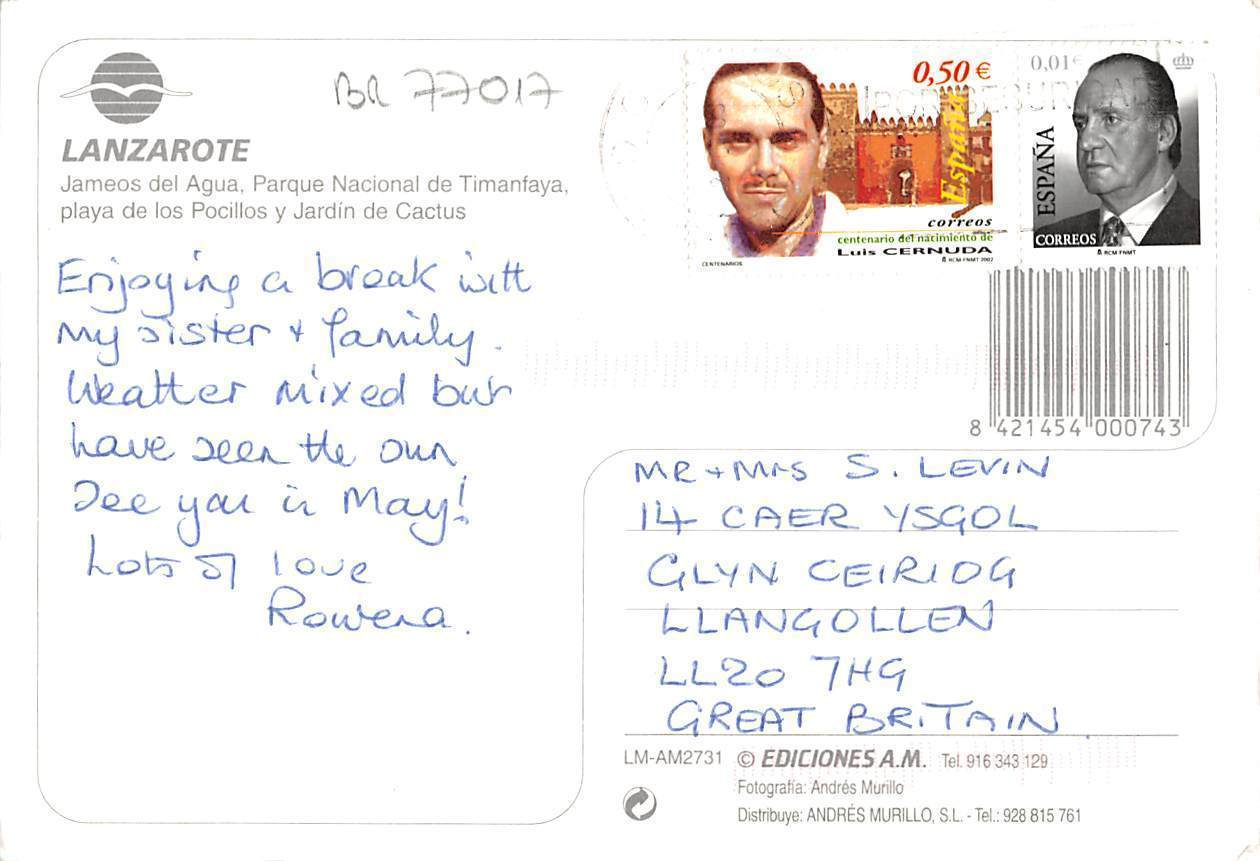 BR 77017
LANZAROTE
Jameos del Agua, Parque Nacional de Timanfaya,
playa de los Pocillos y Jardín de Cactus
Enjoying a break with
my sister + family.
Weather mixed but
have seen the sun
See you in May!
Lots of love
Rowena.
0,50 €
España
correos
centenario del nacimiento de
Luis CERNUDA
CENTENARIOS
RCM-FNMT 2002
0,01€
ESPAÑA
CORREOS
RCM-FNMT
8 421454 000743
MR + MRS S. LEVIN
14 CAER YSGOL
GLYN CEIRIOG
LLANGOLLEN
LL20 7HG
GREAT BRITAIN
LM-AM2731 © EDICIONES A.M. Tel. 916 343 129
Fotografía: Andrés Murillo
Distribuye: ANDRÉS MURILLO, S.L. - Tel.: 928 815 761